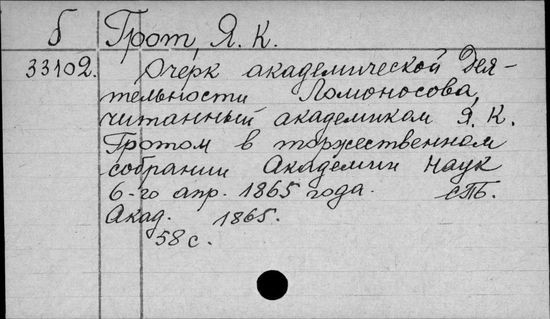 б Грот, Я. К.
33102. Очерк академической дея-
тельности Ломоносова,
читанный академиком Я. К.
Гротом в торжественном
собрании Академии Наук
6-го апр. 1865 года. СПб.
Акад. 1865.
58 с.